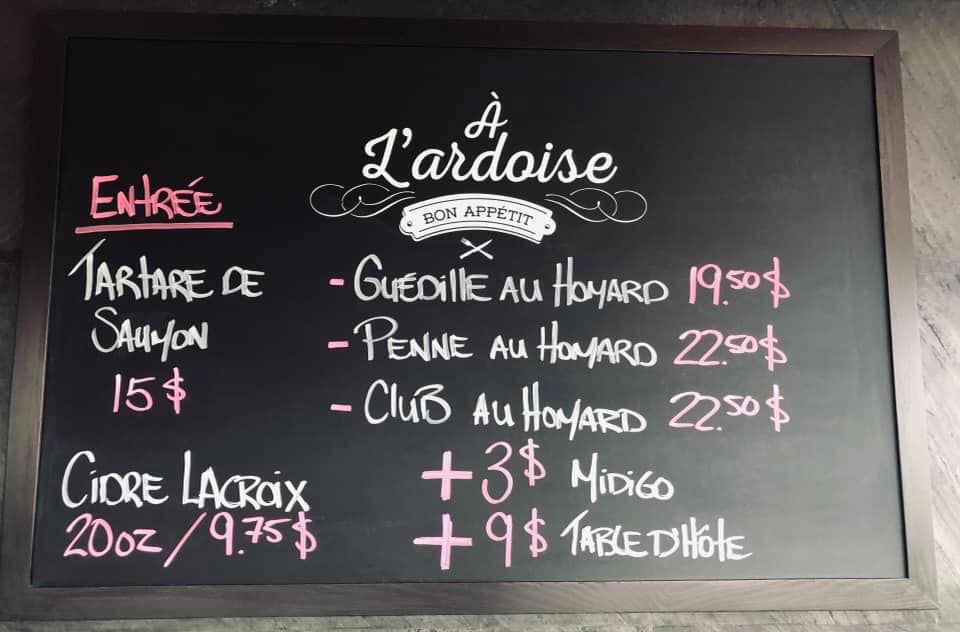 À
L'ardoise
BON APPÉTIT
ENTRÉE
TARTARE DE
SAUMON
15$
- GUÉDILLE AU HOMARD 19.50$
- PENNE AU HOMARD 22.50$
- CLUB AU HOMARD 22.50$
CIDRE LACROIX
20oz / 9.75$
+3$ MIDIGO
+9$ TABLE D'HÔTE